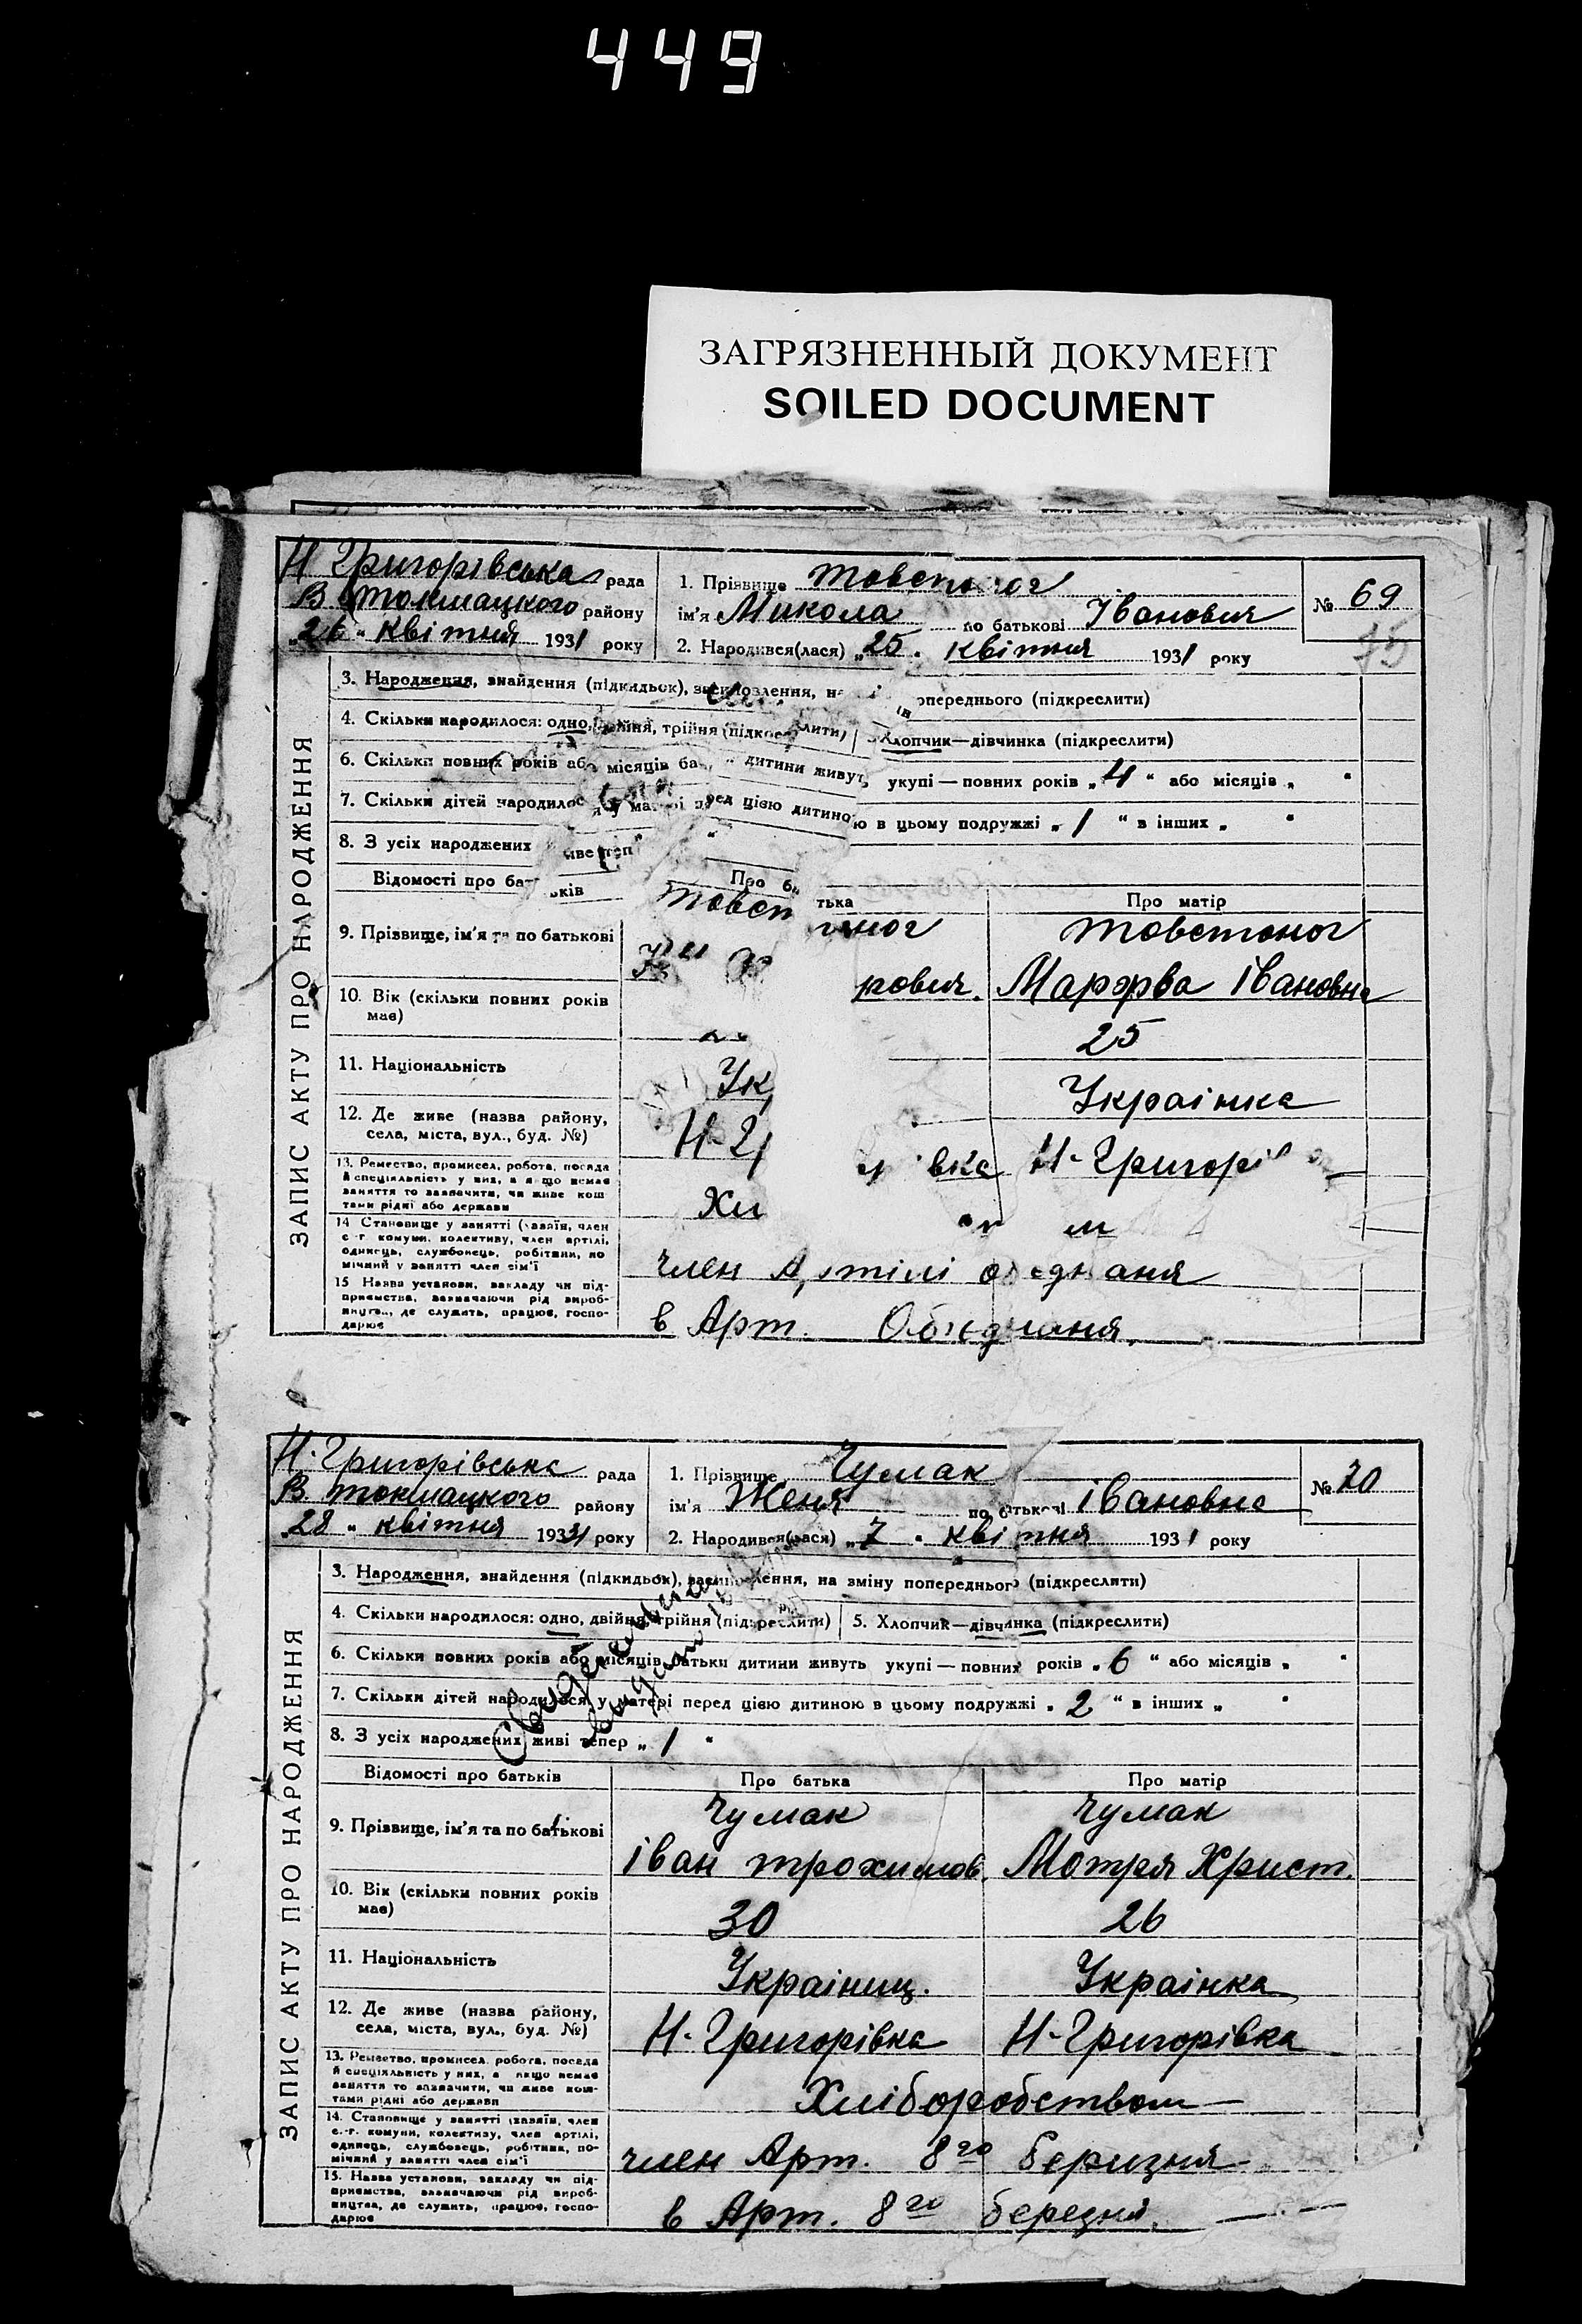 449
ЗАГРЯЗНЕННЫЙ ДОКУМЕНТ
SOILED DOCUMENT
Н Григорівська рада
В токмацького району
„26“ квітня 1931 року
1. Прізвище Товстоног
ім'я Микола по батькові Іванович
2. Народився(лася) „25“ квітня 1931 року
№ 69
ЗАПИС АКТУ ПРО НАРОДЖЕННЯ
3. Народження, знайдення (підкидьок), попереднього (підкреслити)
4. Скільки народилося: одно, трійня Хлопчик—дівчинка (підкреслити)
6. Скільки повних років або місяців дитини живуть укупі — повних років „4“ або місяців „ “
7. Скільки дітей перед цією дитиною в цьому подружжі „1“ в інших „ “
8. З усіх народжених
Відомості про батьків Про батька Про матір
9. Прізвище, ім'я та по батькові
Товстоног
Марфва Івановна
10. Вік (скільки повних років має) 25
11. Національність Українка
12. Де живе (назва району, села, міста, вул., буд. №)
13. Ремество, промисел, робота, посада й спеціяльність у них, а якщо немає заняття то зазначити, чи живе коштами рідні або держави
14 Становище у занятті (хазяїн, член с.-г. комуни, колективу, член артілі, одинець, службовець, робітник, помічний у занятті член сім'ї
член Артілі
15 Назва установи, закладу чи підприємства, зазначаючи рід виробництва, де служить, працює, господарює
в Арт. Обєднаня.
Н. Григорівська рада
В. токмацького району
28 „ квітня 1931 року
1. Прізвище Чумак
ім'я Женя по батькові Івановна
2. Народився(лася) „7“ квітня 1931 року
№ 70
ЗАПИС АКТУ ПРО НАРОДЖЕННЯ
3. Народження, знайдення (підкидьок), засиновлення, на зміну попереднього (підкреслити)
4. Скільки народилося: одно, двійня, трійня (підкреслити) 5. Хлопчик—дівчинка (підкреслити)
6. Скільки повних років або місяців батьки дитини живуть укупі — повних років „6“ або місяців „ “
7. Скільки дітей народилося у матері перед цією дитиною в цьому подружжі „2“ в інших „ “
8. З усіх народжених живі тепер „1“
Відомості про батьків Про батька Про матір
9. Прізвище, ім'я та по батькові
Чумак Чумак
Іван трохимов. Мотря Христ.
10. Вік (скільки повних років має) 30 26
11. Національність Україниц. Українка
12. Де живе (назва району, села, міста, вул., буд. №) Н-Григорівка Н-Григорівка
13. Ремество, промисел, робота, посада й спеціяльність у них, а якщо немає заняття то зазначити, чи живе коштами рідні або держави
Хліборобством
14. Становище у занятті (хазяїн, член с.-г. комуни, колективу, член артілі, одинець, службовець, робітник, помічний у занятті член сім'ї
член Арт. 8го березня
15. Назва установи, закладу чи підприємства, зазначаючи рід виробництва, де служить, працює, господарює
в Арт. 8го березня.